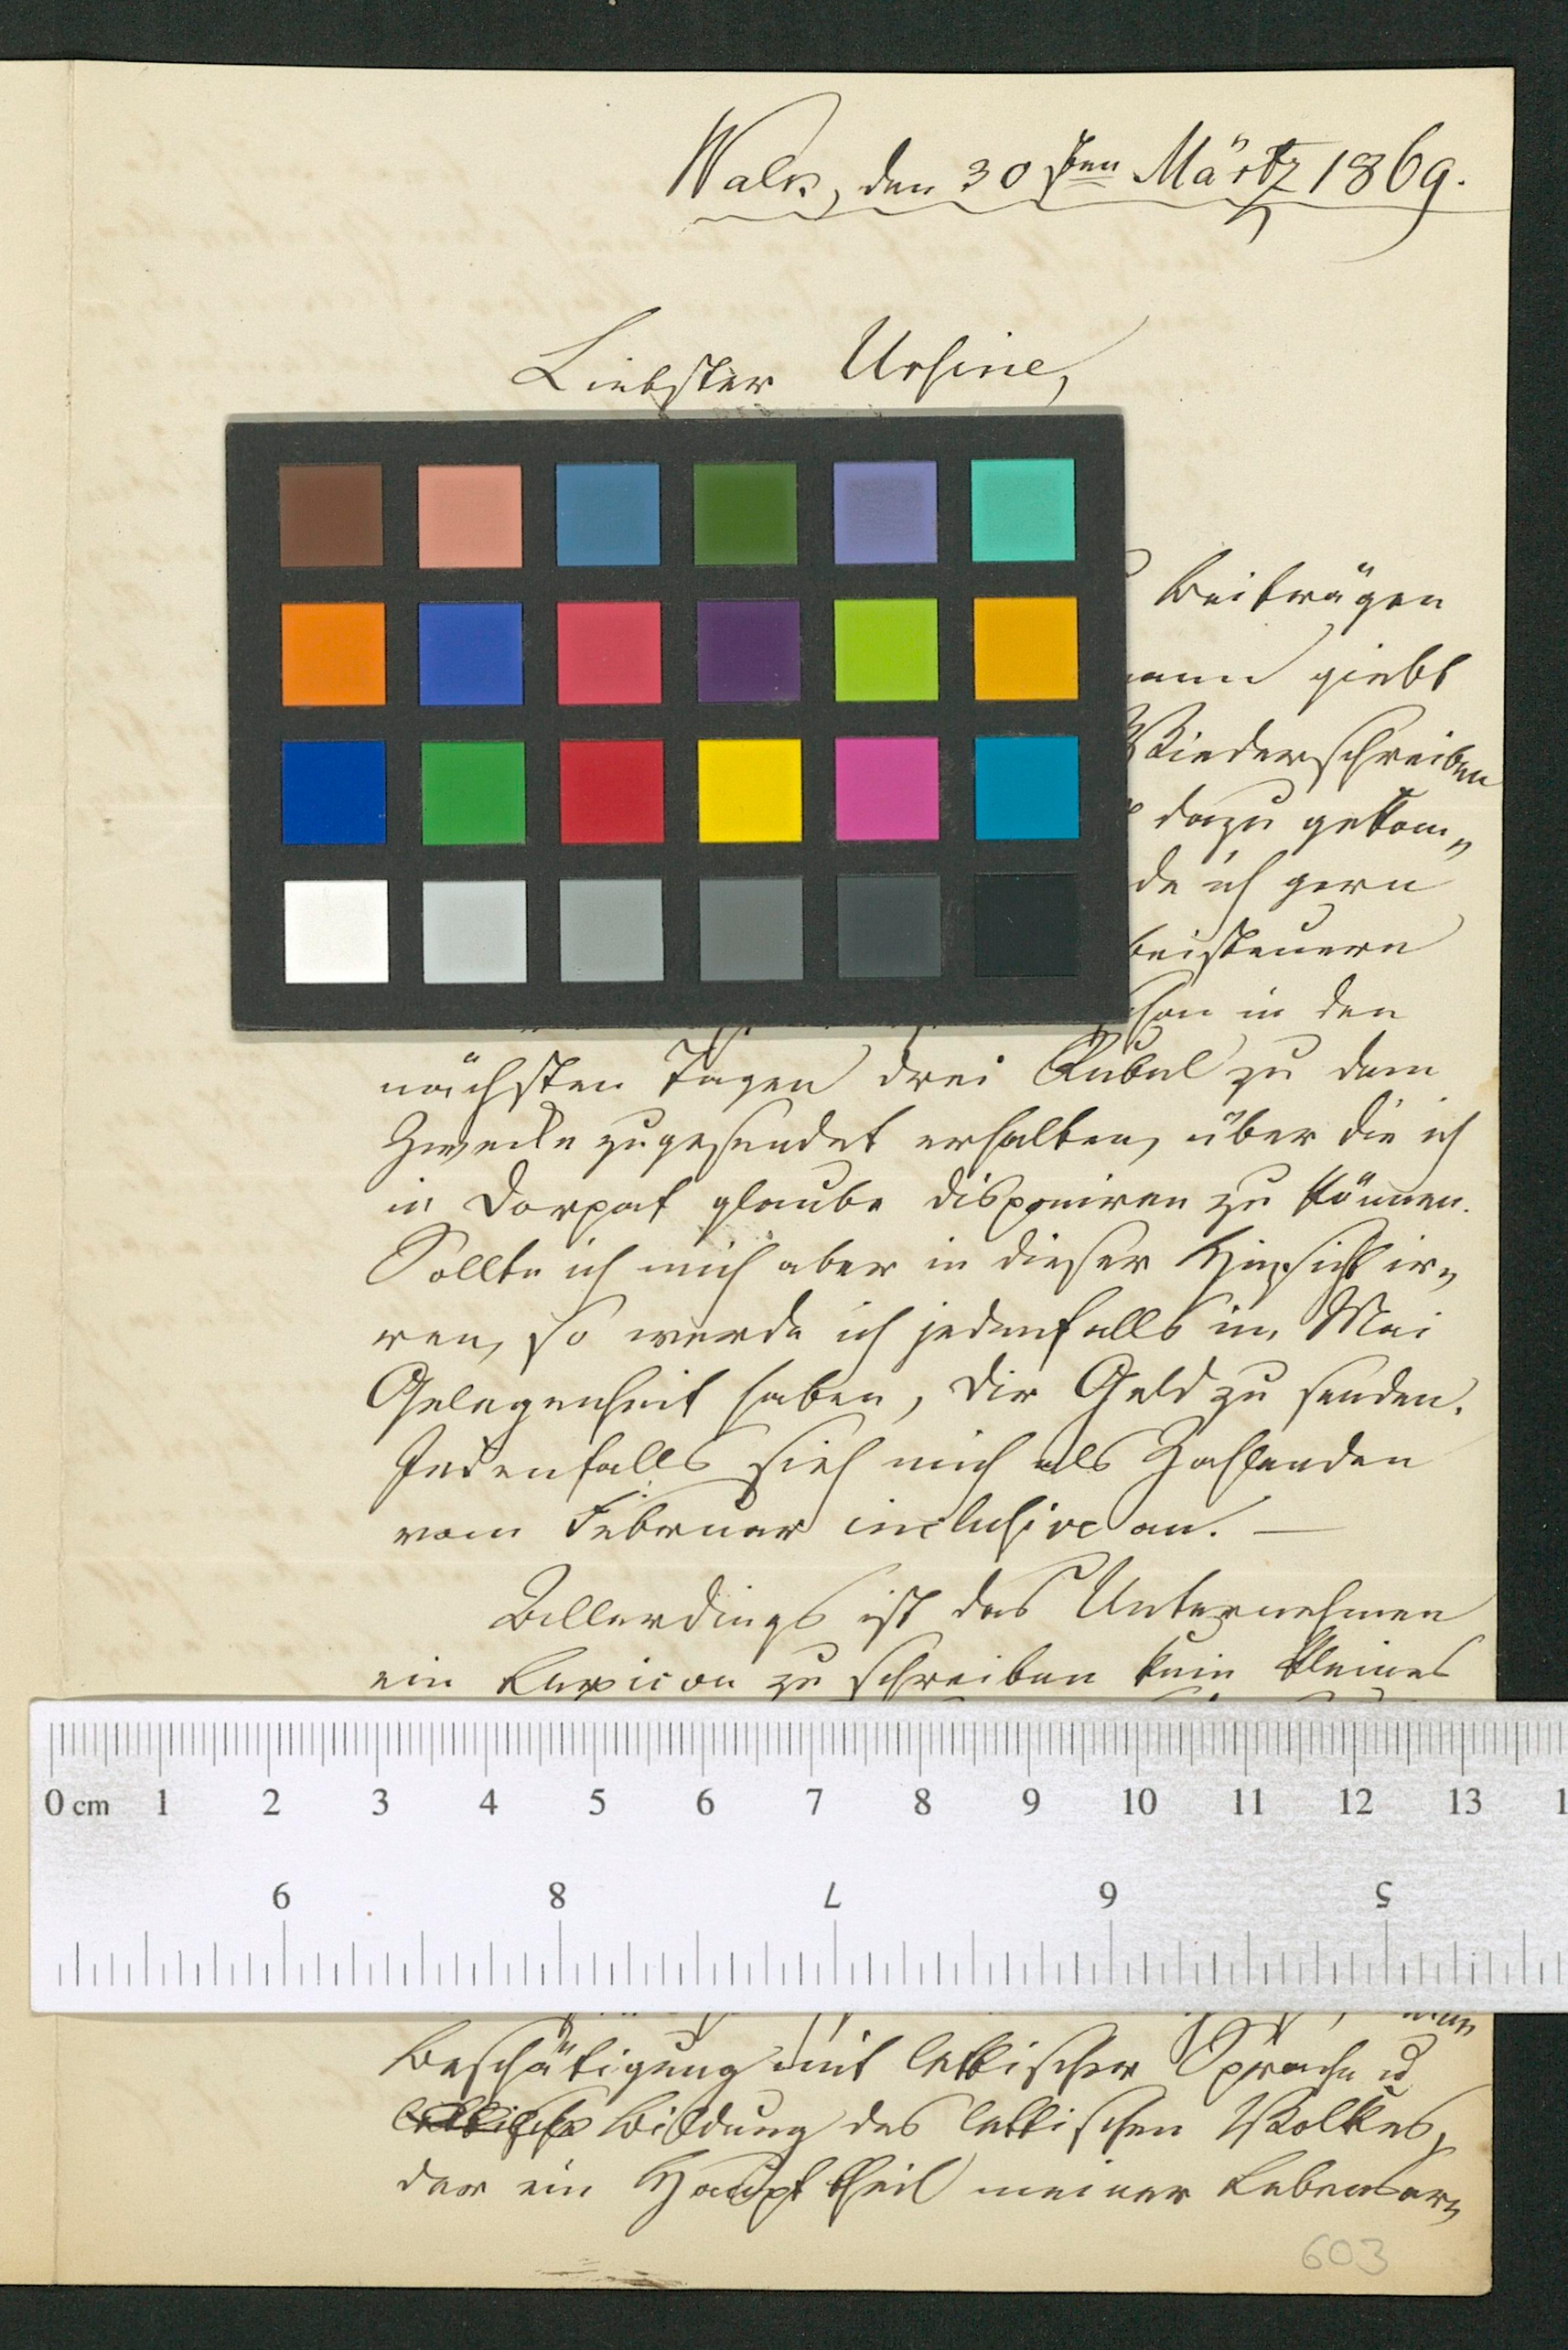 Walk, den 30sten Märtz 1869.
Liebster Ursine,
Beiträgen
giebt
Wiederschreiben
dazu gekom„
de ich gern
beisteuern
schon in den
nächsten Tagen drei Rubel zu dem
Zwecke zugesendet erhalten, über die ich
in Dorpat glaube disponiren zu können.
Sollte ich mich aber in dieser Hinsicht ir„
ren, so werde ich jedenfalls im Mai
Gelegenheit haben, Dir Geld zu senden.
Jedenfalls sieh mich als Zahlenden
vom Februar inclusive an. —
Allerdings ist das Unternehmen
ein Lexicon zu schreiben kein kleines
0 cm 1 2 3 4 5 6 7 8 9 10 11 12 13 1
9 8 7 6 5
Beschätigung mit lettischer Sprache u
lettische Bildung des lettischen Volkes,
der ein Haupttheil meiner Lebensar„
603